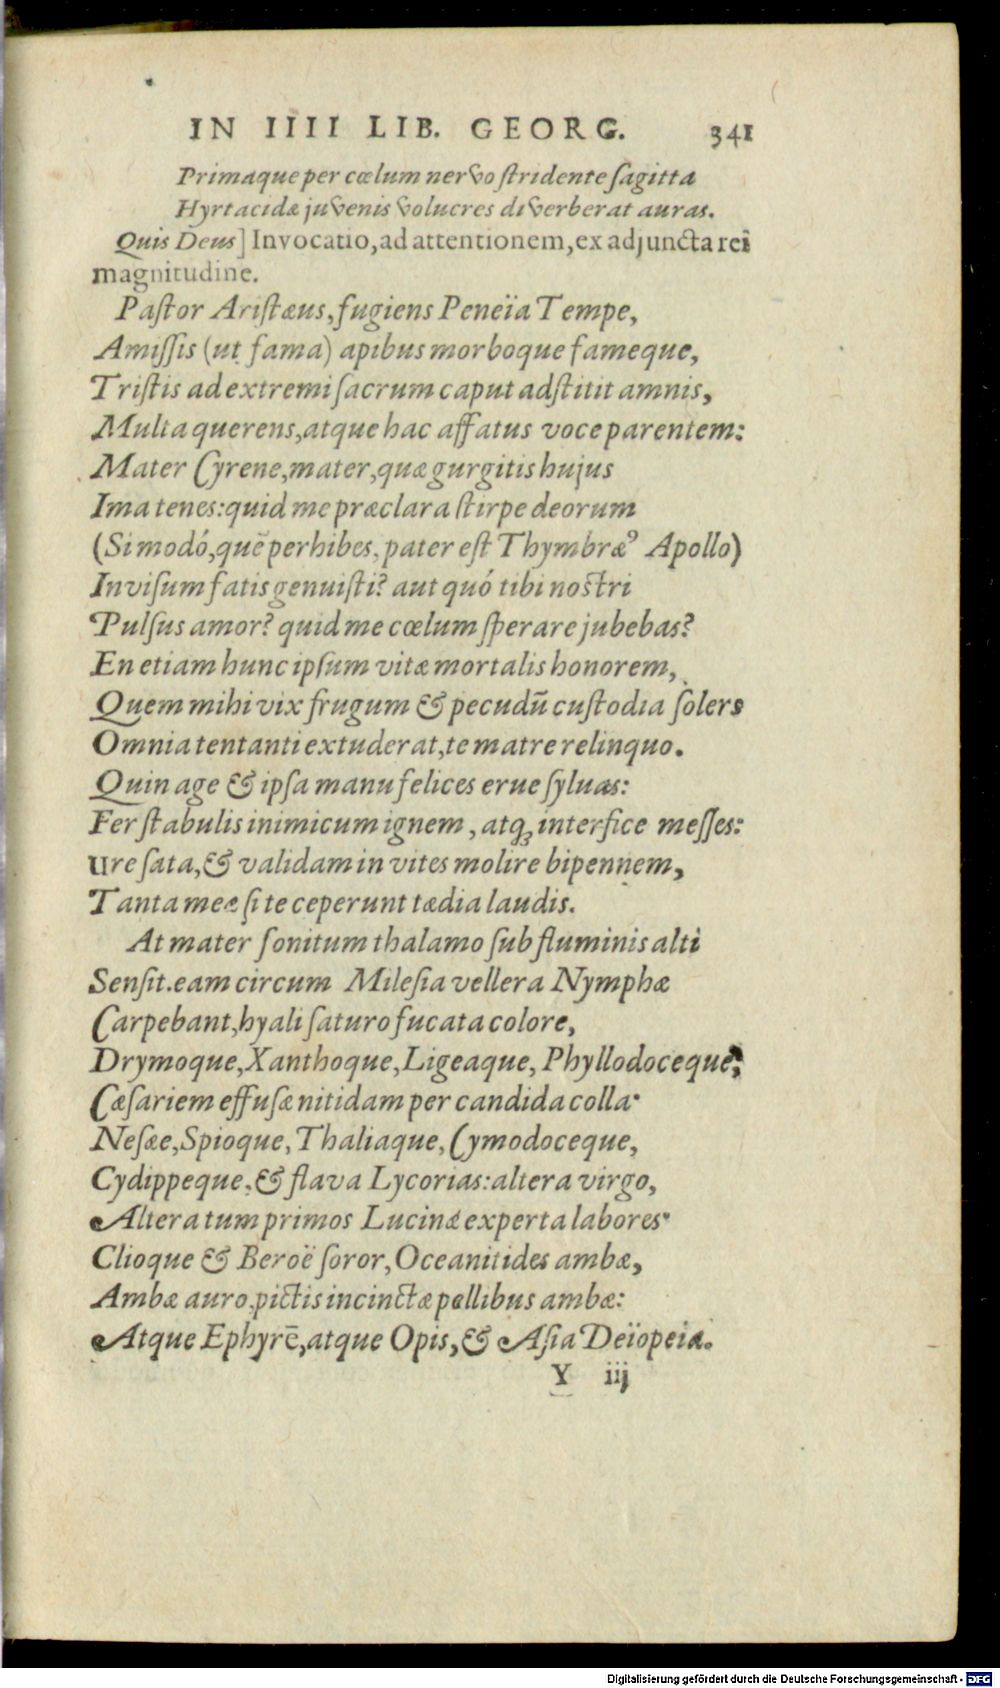 IN IIII LIB. GEORG. 341
Primaque per cœlum nervo ſtridente ſagitta
Hyrtacidæ juvenis volucres diverberat auras.
Quis Deus] Invocatio, ad attentionem, ex adjuncta rei
magnitudine.
Paſtor Ariſtæus, fugiens Peneïa Tempe,
Amiſſis (ut fama) apibus morboque fameque,
Triſtis ad extremi ſacrum caput adſtitit amnis,
Multa querens, atque hac affatus voce parentem:
Mater Cyrene, mater, quæ gurgitis hujus
Ima tenes: quid me præclara ſtirpe deorum
(Si modó, quē perhibes, pater eſt Thymbræꝰ Apollo)
Inviſum fatis genuiſti? aut quó tibi noſtri
Pulſus amor? quid me cœlum ſperare jubebas?
En etiam hunc ipſum vitæ mortalis honorem,
Quem mihi vix frugum & pecudū cuſtodia ſolers
Omnia tentanti extuderat, te matre relinquo.
Quin age & ipſa manu felices erue ſyluas:
Fer ſtabulis inimicum ignem, atqꝫ interfice meſſes:
Ure ſata, & validam in vites molire bipennem,
Tanta meæ ſi te ceperunt tædia laudis.
At mater ſonitum thalamo ſub fluminis alti
Senſit. eam circum Mileſia vellera Nymphæ
Carpebant, hyali ſaturo fucata colore,
Drymoque, Xanthoque, Ligeaque, Phyllodoceque,
Cæſariem effuſæ nitidam per candida colla.
Neſæe, Spioque, Thaliaque, Cymodoceque,
Cydippeque, & flava Lycorias: altera virgo,
Altera tum primos Lucinæ experta labores.
Clioque & Beroë ſoror, Oceanitides ambæ,
Ambæ auro, pictis incinctæ pellibus ambæ:
Atque Ephyrē, atque Opis, & Aſia Deïopeia.
Y iij
Digitalisierung gefördert durch die Deutsche Forschungsgemeinschaft - DFG